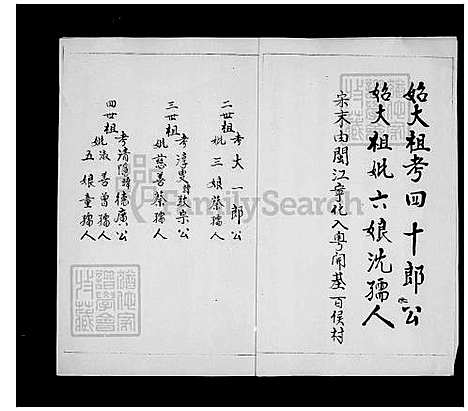 始大祖考四十郎公
始大祖妣六娘沈孺人
宋末由閩江寧化入粵開基百侯村
二世祖考大一郎公
妣三娘蔡孺人
三世祖考淳史諱致宗公
妣慈善蔡孺人
四世祖考清隱諱德廣公
妣淑善曾孺人
五娘童孺人
FamilySearch